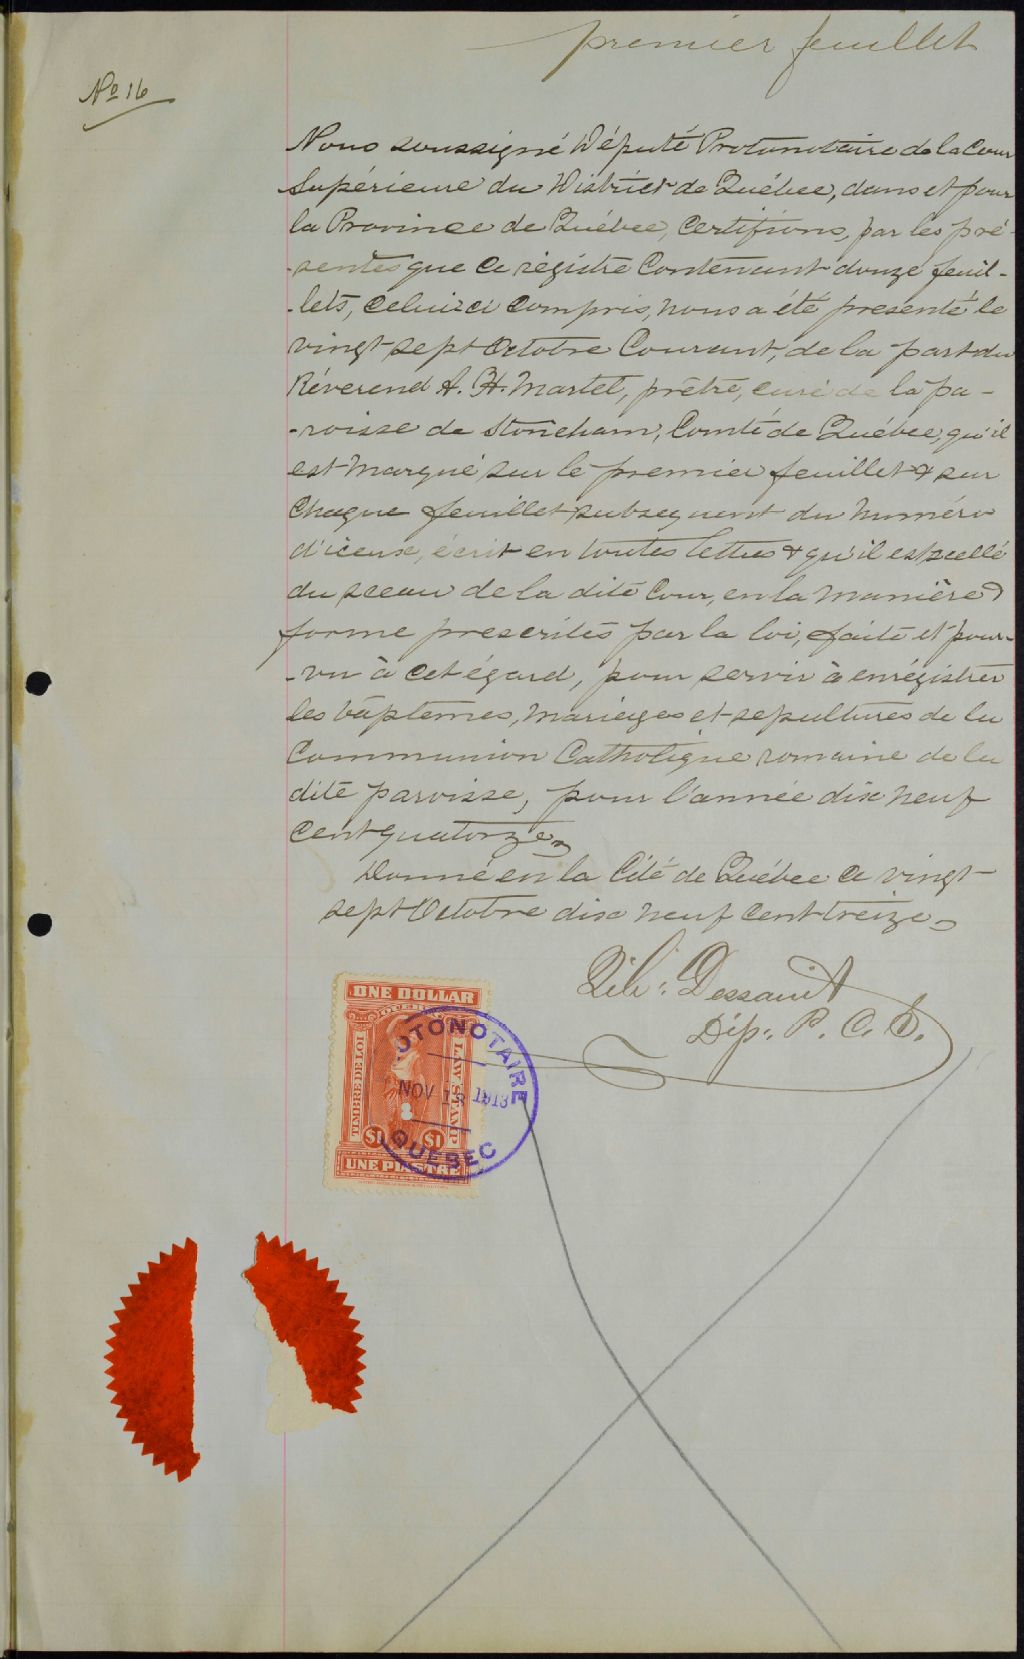 premier feuillet
No 16
Nous soussigné Député Protonotaire de la Cour
Supérieure du District de Québec, dans et pour
la Province de Québec, Certifions, par les pré-
-sentes que ce régistre Contenant douze feuil-
-lets, celui-ci compris, nous a été présenté le
vingt-sept Octobre Courant, de la part du
Révérend A. H. Martel, prêtre, curé de la pa-
-roisse de Stoneham, Comté de Québec, qu'il
est marqué sur le premier feuillet & sur
chaque feuillet subséquent du numéro
d'iceux, écrit en toutes lettres & qu'il est scellé
du sceau de la dite Cour, en la manière &
forme prescrites par la loi, faite et pour-
-vu à cet égard, pour servir à enrégistrer
les baptêmes, mariages et sépultures de la
Communion Catholique romaine de la
dite paroisse, pour l'année dix neuf
cent quatorze
Donné en la Cité de Québec ce vingt-
sept Octobre dix neuf cent treize
Dessault
Dép. P. C. S.
ONE DOLLAR
QUEBEC
TIMBRE DE LOI
LAW STAMP
$1 $1
UNE PIASTRE
OTONOTAIRE
NOV 18 1913
QUEBEC